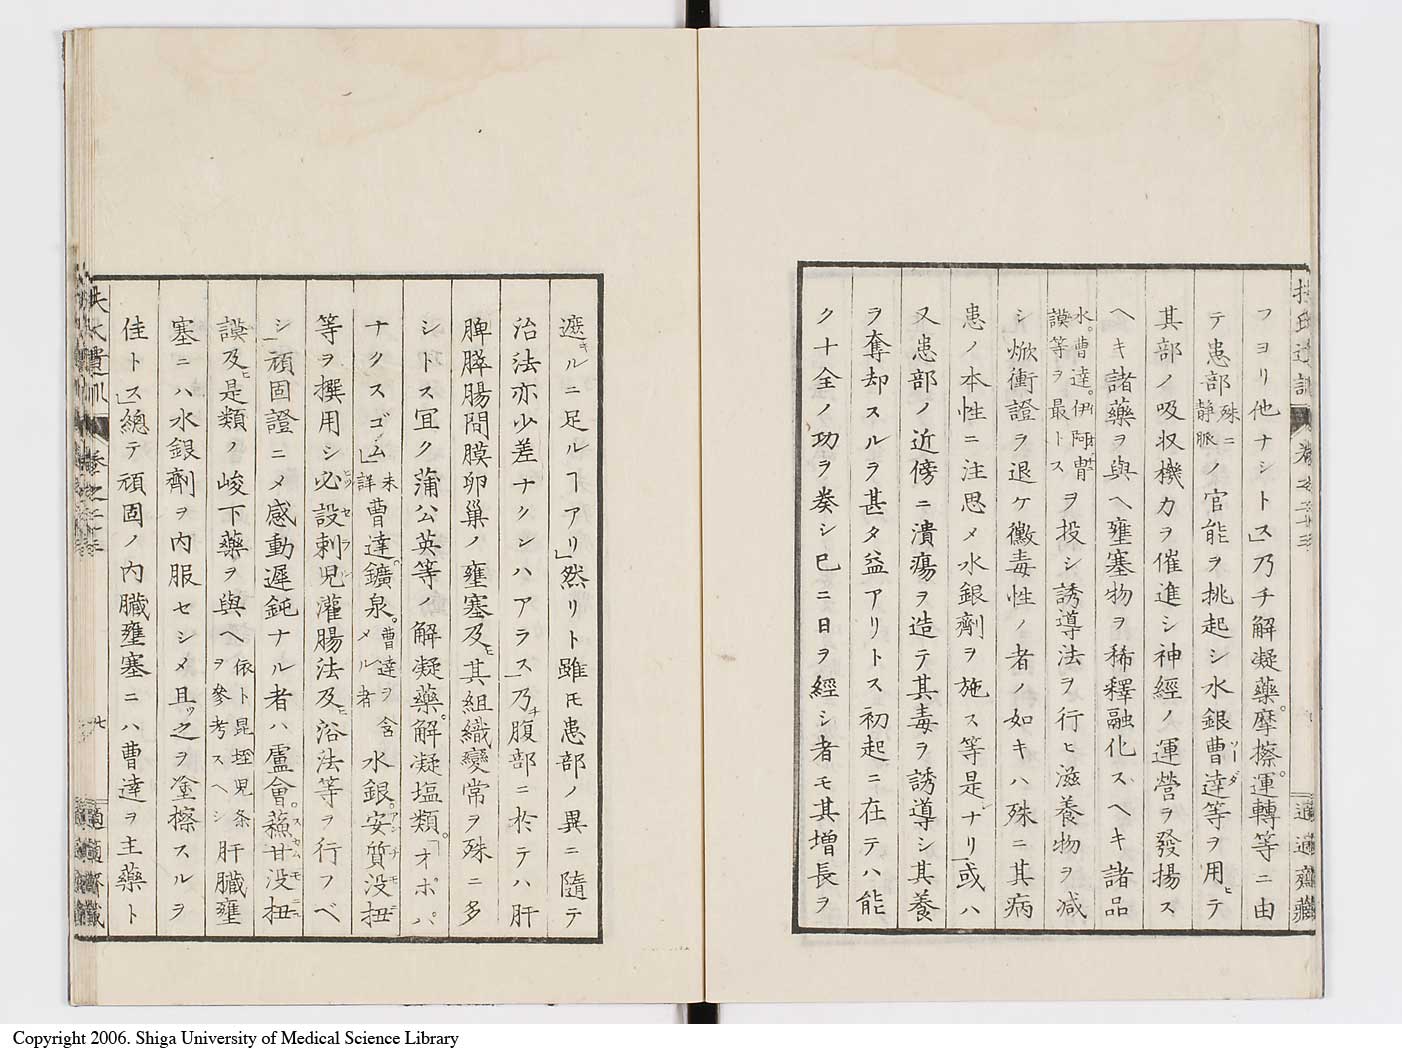 フヨリ他ナシトス」乃チ解凝藥。摩擦。運轉等ニ由
テ患部殊ニ静脈ノ官能ヲ挑起シ水銀曹達ソーダ等ヲ用ヒテ
其部ノ吸収機力ヲ催進シ神經ノ運營ヲ發揚ス
ヘキ諸藥ヲ與ヘ壅塞物ヲ稀釋融化スヘキ諸品
水。曹達。伊阿
謨等ヲ最トスヲ投シ誘導法ヲ行ヒ滋養物ヲ減
シ焮衝證ヲ退ケ黴毒性ノ者ノ如キハ殊ニ其病
患ノ本性ニ注思メ水銀劑ヲ施ス等是ナリ」或ハ
又患部ノ近傍ニ潰瘍ヲ造テ其毒ヲ誘導シ其養
ヲ奪却スルヲ甚タ益アリトス初起ニ在テハ能
ク十全ノ功ヲ奏シ已ニ日ヲ經シ者モ其増長ヲ
適適齋藏
遮キルニ足ルヿアリ」然リト雖モ患部ノ異ニ隨テ
治法亦少差ナクンハアラス」乃チ腹部ニ於テハ肝
脾膵腸間膜卵巢ノ壅塞及ヒ其組織變常ヲ殊ニ多
シトス冝ク蒲公英等ノ解凝藥。解凝塩類。「オポパ
ナクスゴム」未詳曹達鑛泉。曹達ヲ含メル者水銀。安アン質チ没モ扭ニ
等ヲ撰用シ必ヒ設セ剌ラ児灌腸法及ヒ浴法等ヲ行フベ
シ」頑固證ニメ感動遲鈍ナル者ハ盧會。蘓ス甘カム没モ扭ニ
謨及ヒ是類ノ峻下藥ヲ與ヘ依ト昆垤児条ヲ參考スヘシ肝臓壅
塞ニハ水銀劑ヲ内服セシメ且ツ之ヲ塗擦スルヲ
佳トス」總テ頑固ノ内臓壅塞ニハ曹達ヲ主藥ト
扶氏遺訓
卷之二十三
七
適適齋藏